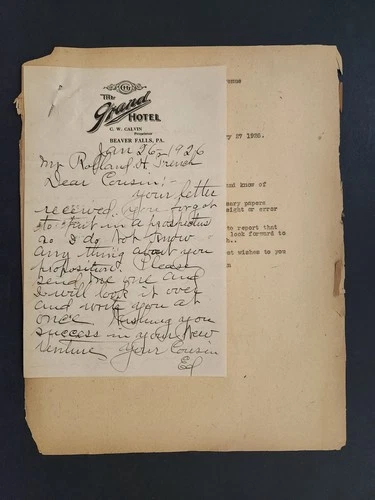 THE
Grand
HOTEL
C. W. CALVIN
Proprietor
BEAVER FALLS, PA.
Jan 26 - 1926
Mr Rolland H French
Dear Cousin:-
your letter
received you forgot
to put in a prospectus
as I do not know
any thing about you
proposition. Please
send me one and
I will look it over
and write you at
once Wishing you
success in your New
venture your Cousin
Ed
enue
ry 27 1926.
nd know of
sary papers
sight or error
to report that
look forward to
st wishes to you